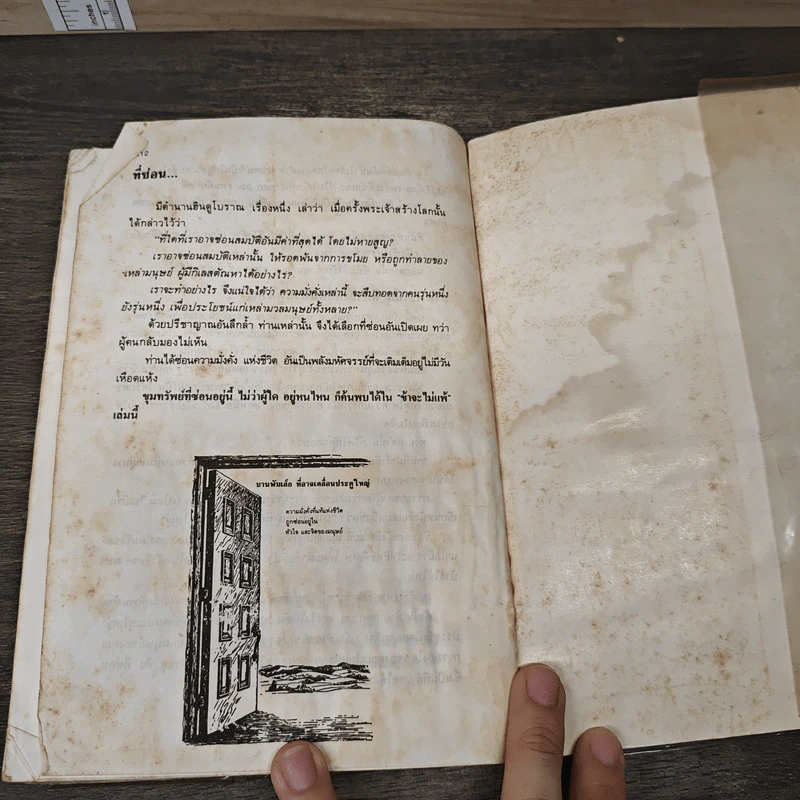 inches
312
ที่ซ่อน...
มีตำนานฮินดูโบราณ เรื่องหนึ่ง เล่าว่า เมื่อครั้งพระเจ้าสร้างโลกนั้น
ได้กล่าวไว้ว่า
"ที่ใดที่เราอาจซ่อนสมบัติอันมีค่าที่สุดได้ โดยไม่หายสูญ?
เราอาจซ่อนสมบัติเหล่านั้น ให้รอดพ้นจากการขโมย หรือถูกทำลายของ
เหล่ามนุษย์ ผู้มีกิเลสตัณหาได้อย่างไร?
เราจะทำอย่างไร จึงแน่ใจได้ว่า ความมั่งคั่งเหล่านี้ จะสืบทอดจากคนรุ่นหนึ่ง
ยังรุ่นหนึ่ง เพื่อประโยชน์แก่เหล่ามวลมนุษย์ทั้งหลาย?"
ด้วยปรีชาญาณอันลึกล้ำ ท่านเหล่านั้น จึงได้เลือกที่ซ่อนอันเปิดเผย ทว่า
ผู้คนกลับมองไม่เห็น
ท่านได้ซ่อนความมั่งคั่ง แห่งชีวิต อันเป็นพลังมหัศจรรย์ที่จะเติมเต็มอยู่ไม่มีวัน
เหือดแห้ง
ขุมทรัพย์ที่ซ่อนอยู่นี้ ไม่ว่าผู้ใด อยู่หนไหน ก็ค้นพบได้ใน "ข้าจะไม่แพ้"
เล่มนี้
บานพับเล็ก ที่อาจเคลื่อนประตูใหญ่
ความมั่งคั่งที่แท้แห่งชีวิต
ถูกซ่อนอยู่ใน
หัวใจ และจิตของมนุษย์